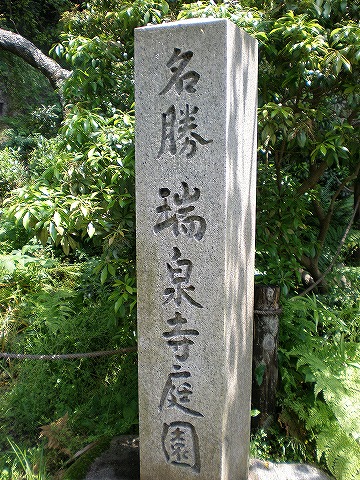 名勝 瑞泉寺庭園